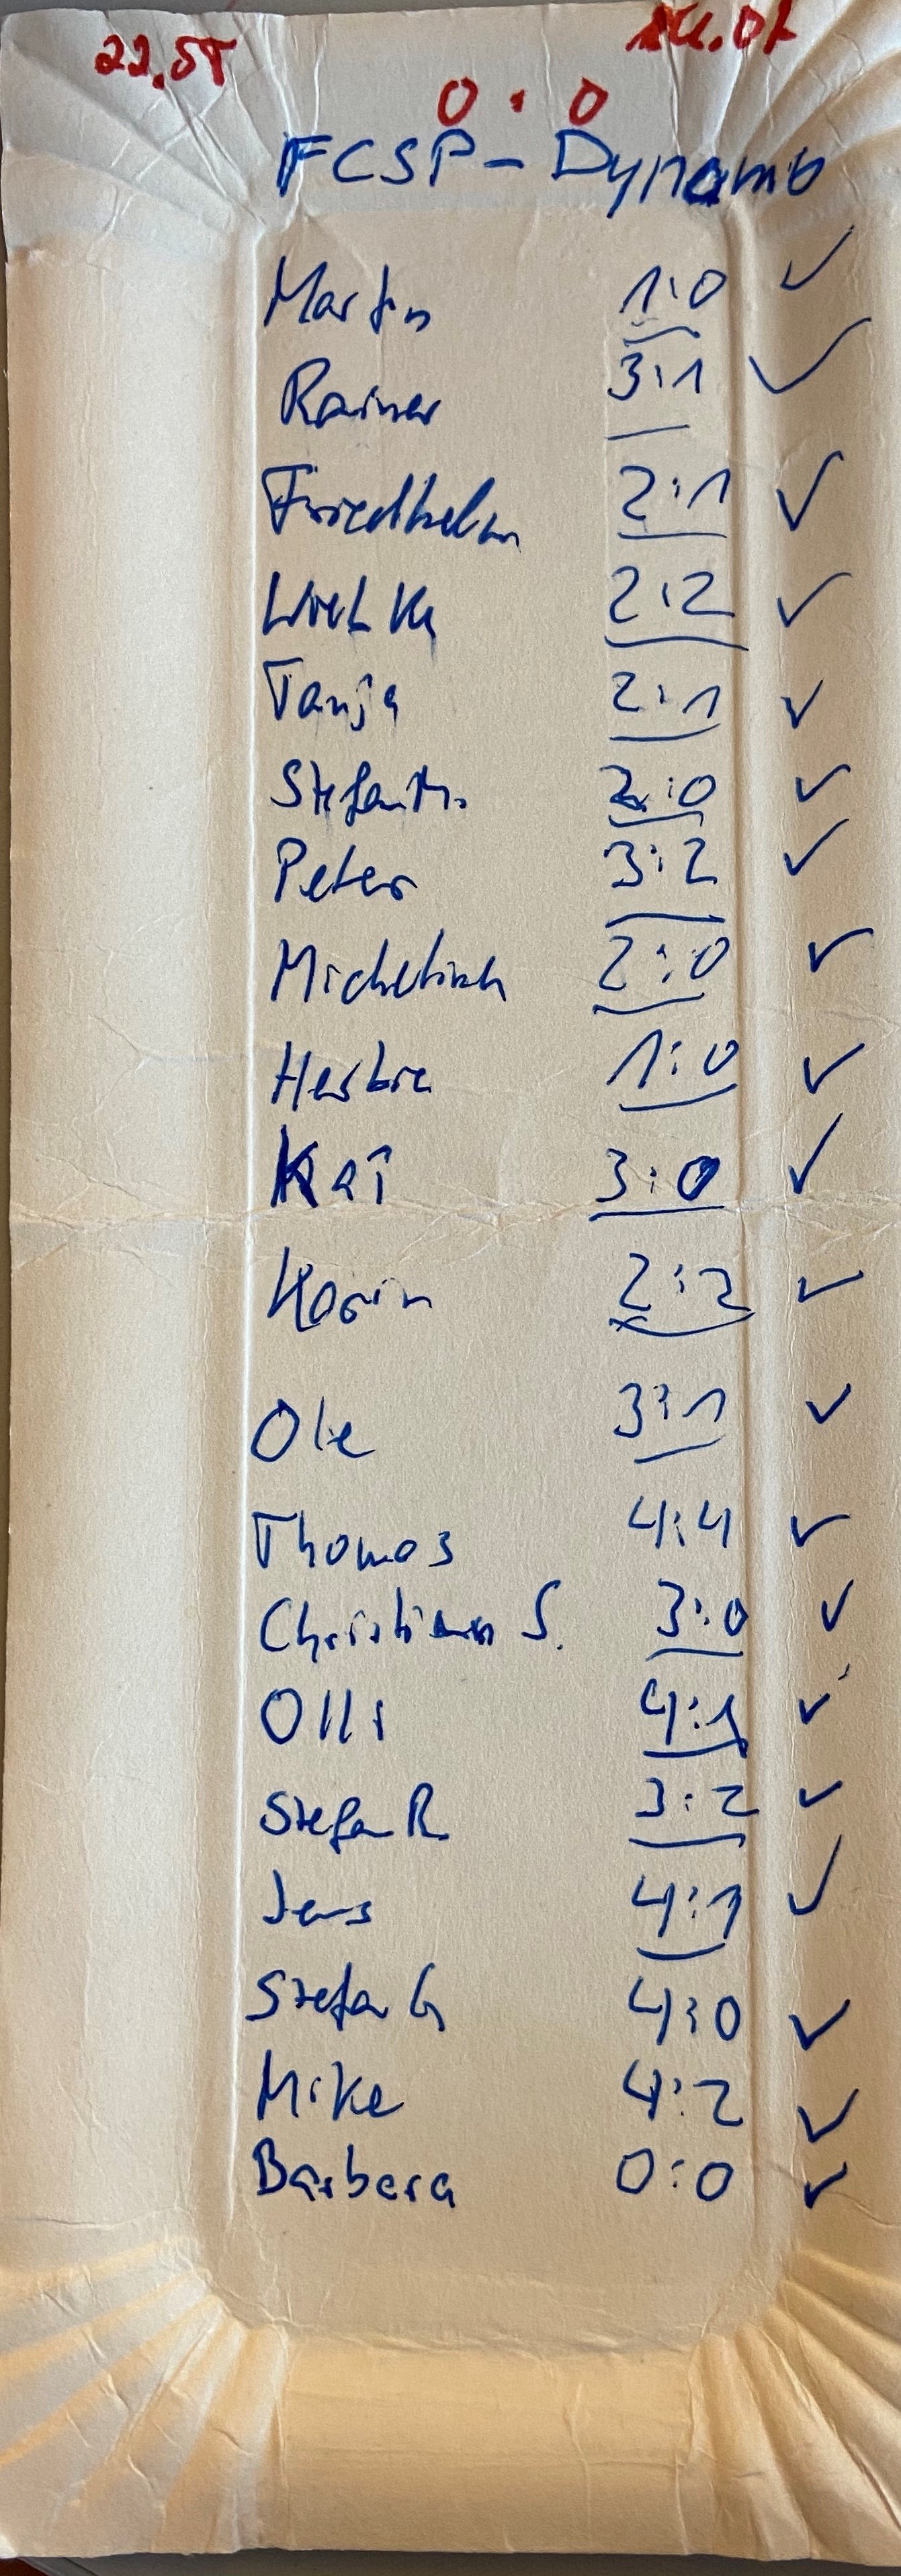 22.ST
0:0
FCSP - Dynamo
Martin 1:0 ✓
Rainer 3:1 ✓
Friedhelm 2:1 ✓
2:2 ✓
Tanja 2:1 ✓
Stefan M. 2:0 ✓
Peter 3:2 ✓
2:0 ✓
Herbie 1:0 ✓
Kai 3:0 ✓
Karin 2:2 ✓
Ole 3:1 ✓
Thomas 4:4 ✓
Christian S. 3:0 ✓
Olli 4:1 ✓
Stefan R 3:2 ✓
Jens 4:1 ✓
Stefan G 4:0 ✓
Mike 4:2 ✓
Barbara 0:0 ✓